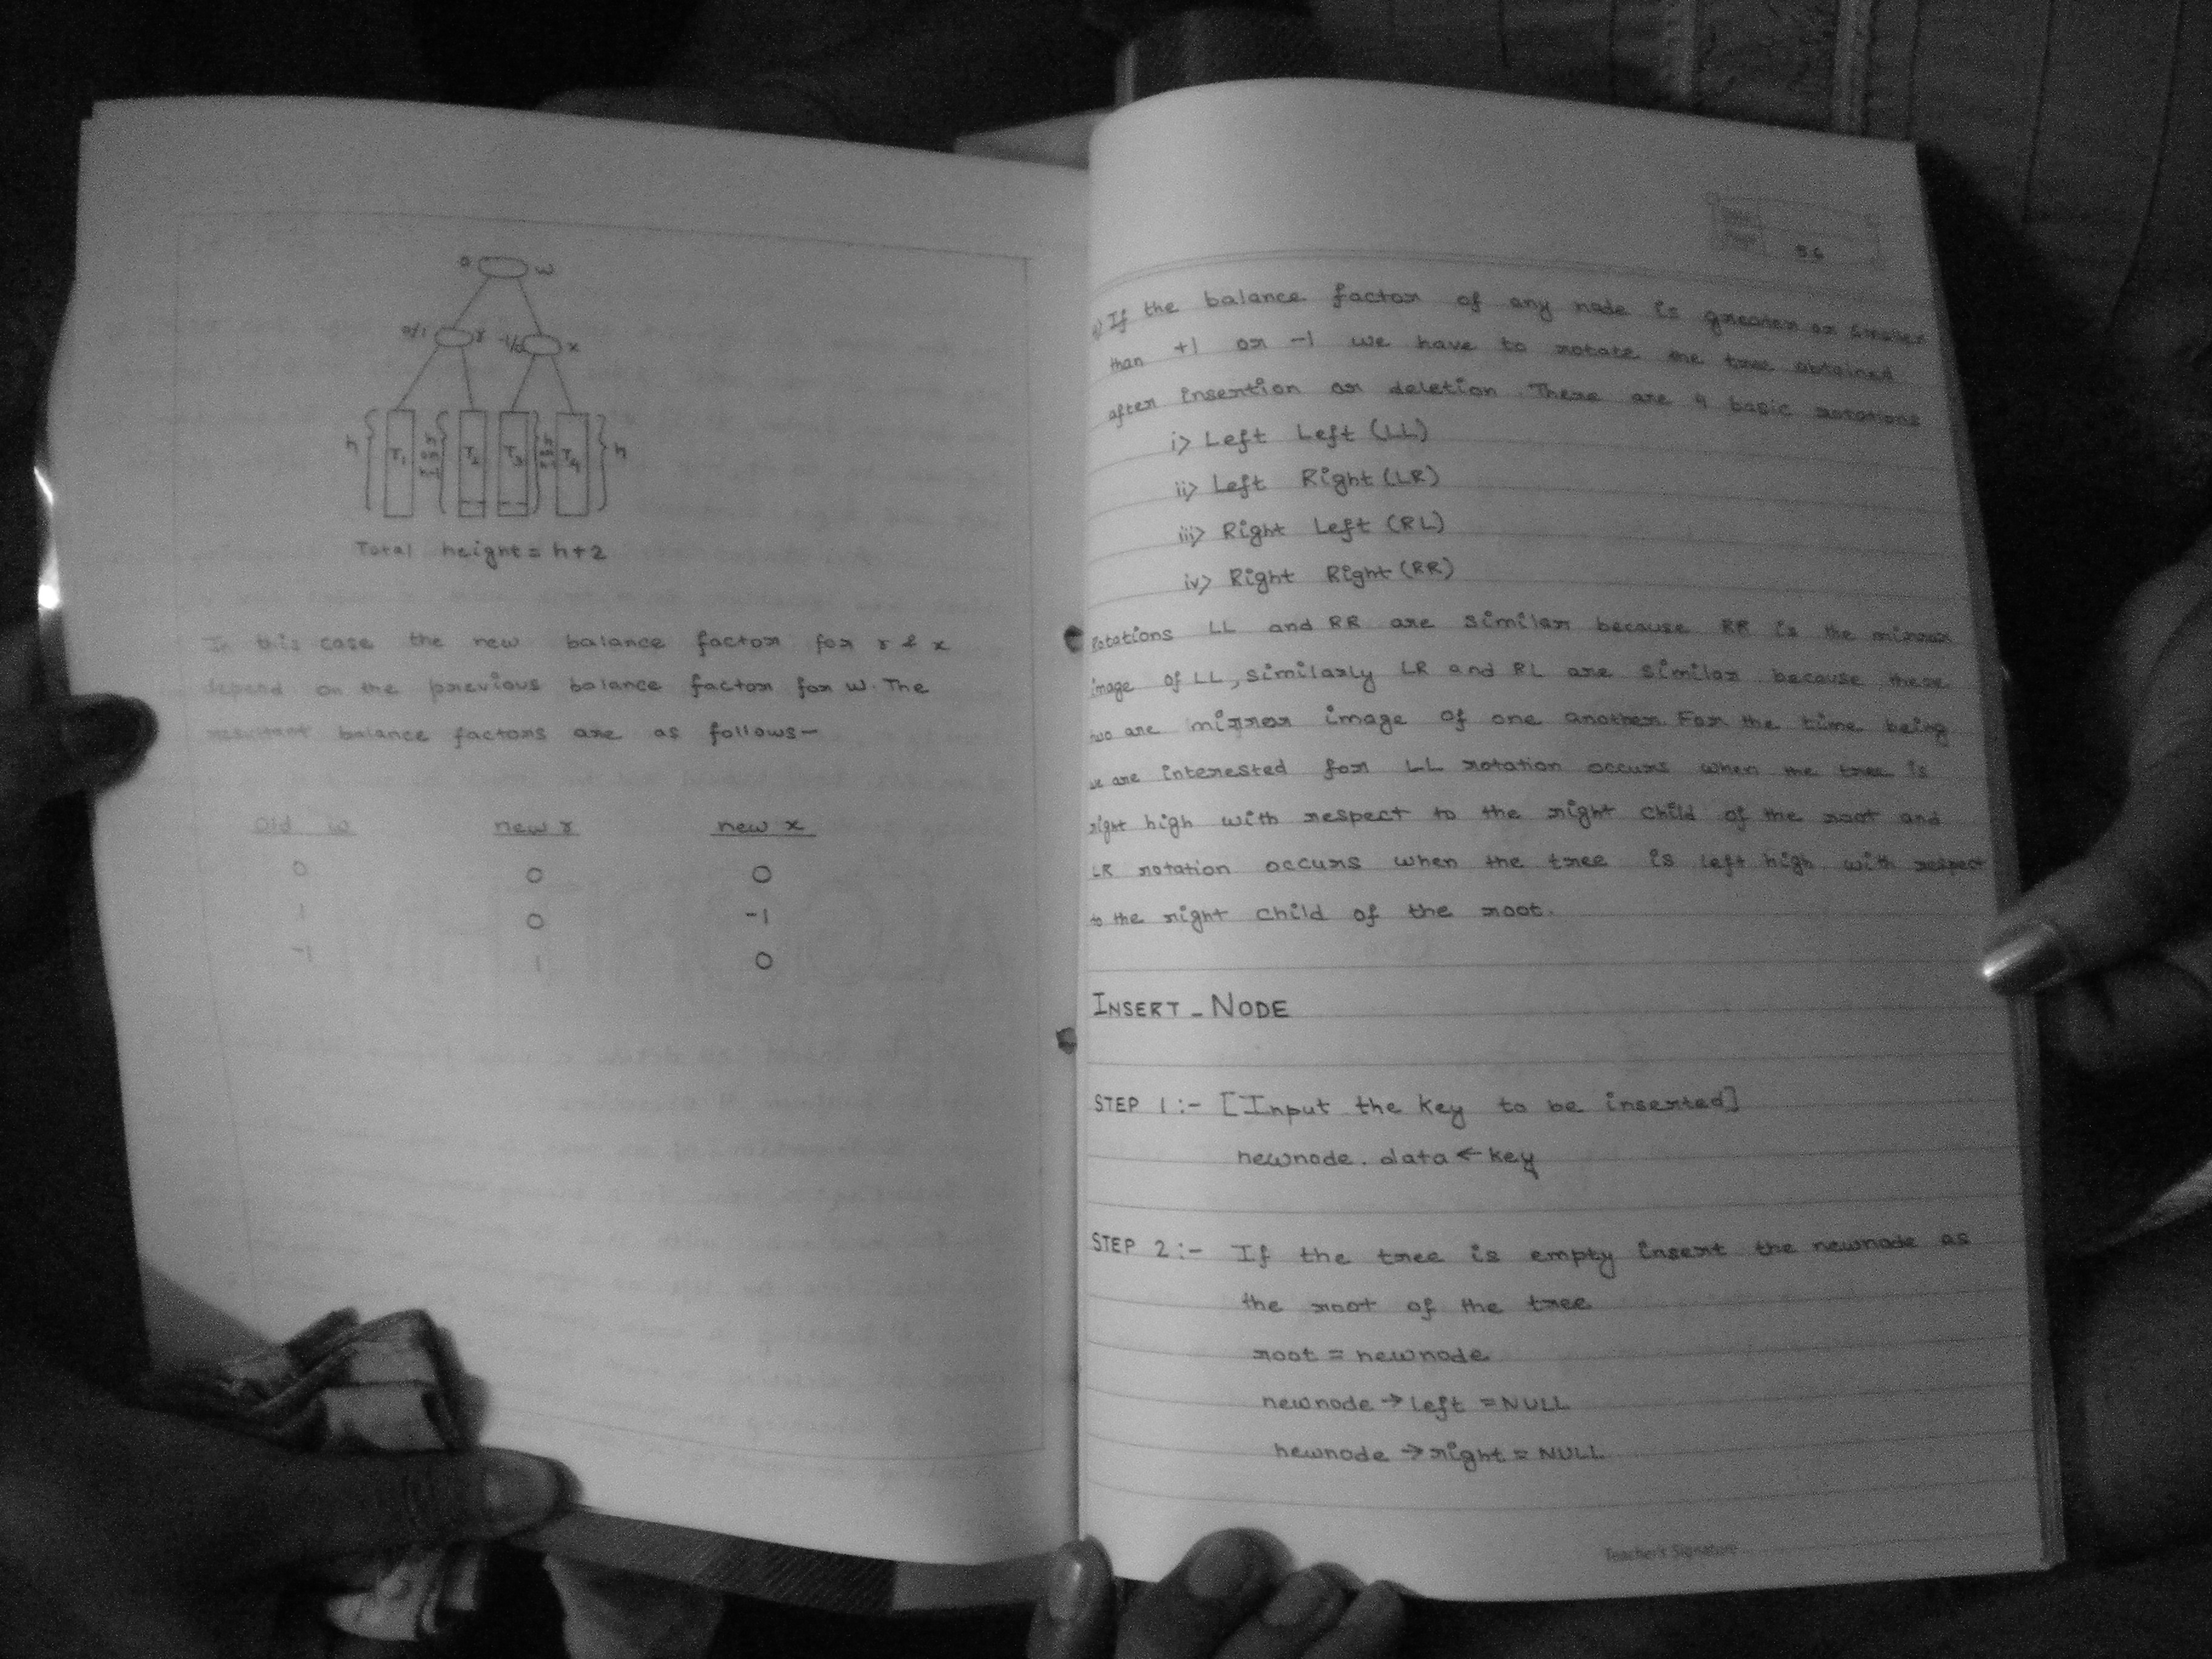 0 w
0/1 r -1/0 x
h T1 h or h-1 T2 T3 h or h-1 T4 h
Total height = h+2
In this case the new balance factor for r & x
depend on the previous balance factor for w. The
resultant balance factors are as follows-
old w new r new x
0 0 0
1 0 -1
-1 1 0
56
If the balance factor of any node is greater or smaller
than +1 or -1 we have to rotate the tree obtained
after insertion or deletion. There are 4 basic rotations
i> Left Left (LL)
ii> Left Right (LR)
iii> Right Left (RL)
iv> Right Right (RR)
Rotations LL and RR are similar because RR is the mirror
image of LL, similarly LR and RL are similar because these
two are mirror image of one another. For the time being
we are interested for LL rotation occurs when the tree is
right high with respect to the right child of the root and
LR rotation occurs when the tree is left high with respect
to the right child of the root.
INSERT_NODE
STEP 1:- [Input the key to be inserted]
newnode.data ← key
STEP 2:- If the tree is empty insert the newnode as
the root of the tree
root = newnode
newnode → left = NULL
newnode → right = NULL
Teacher's Signature